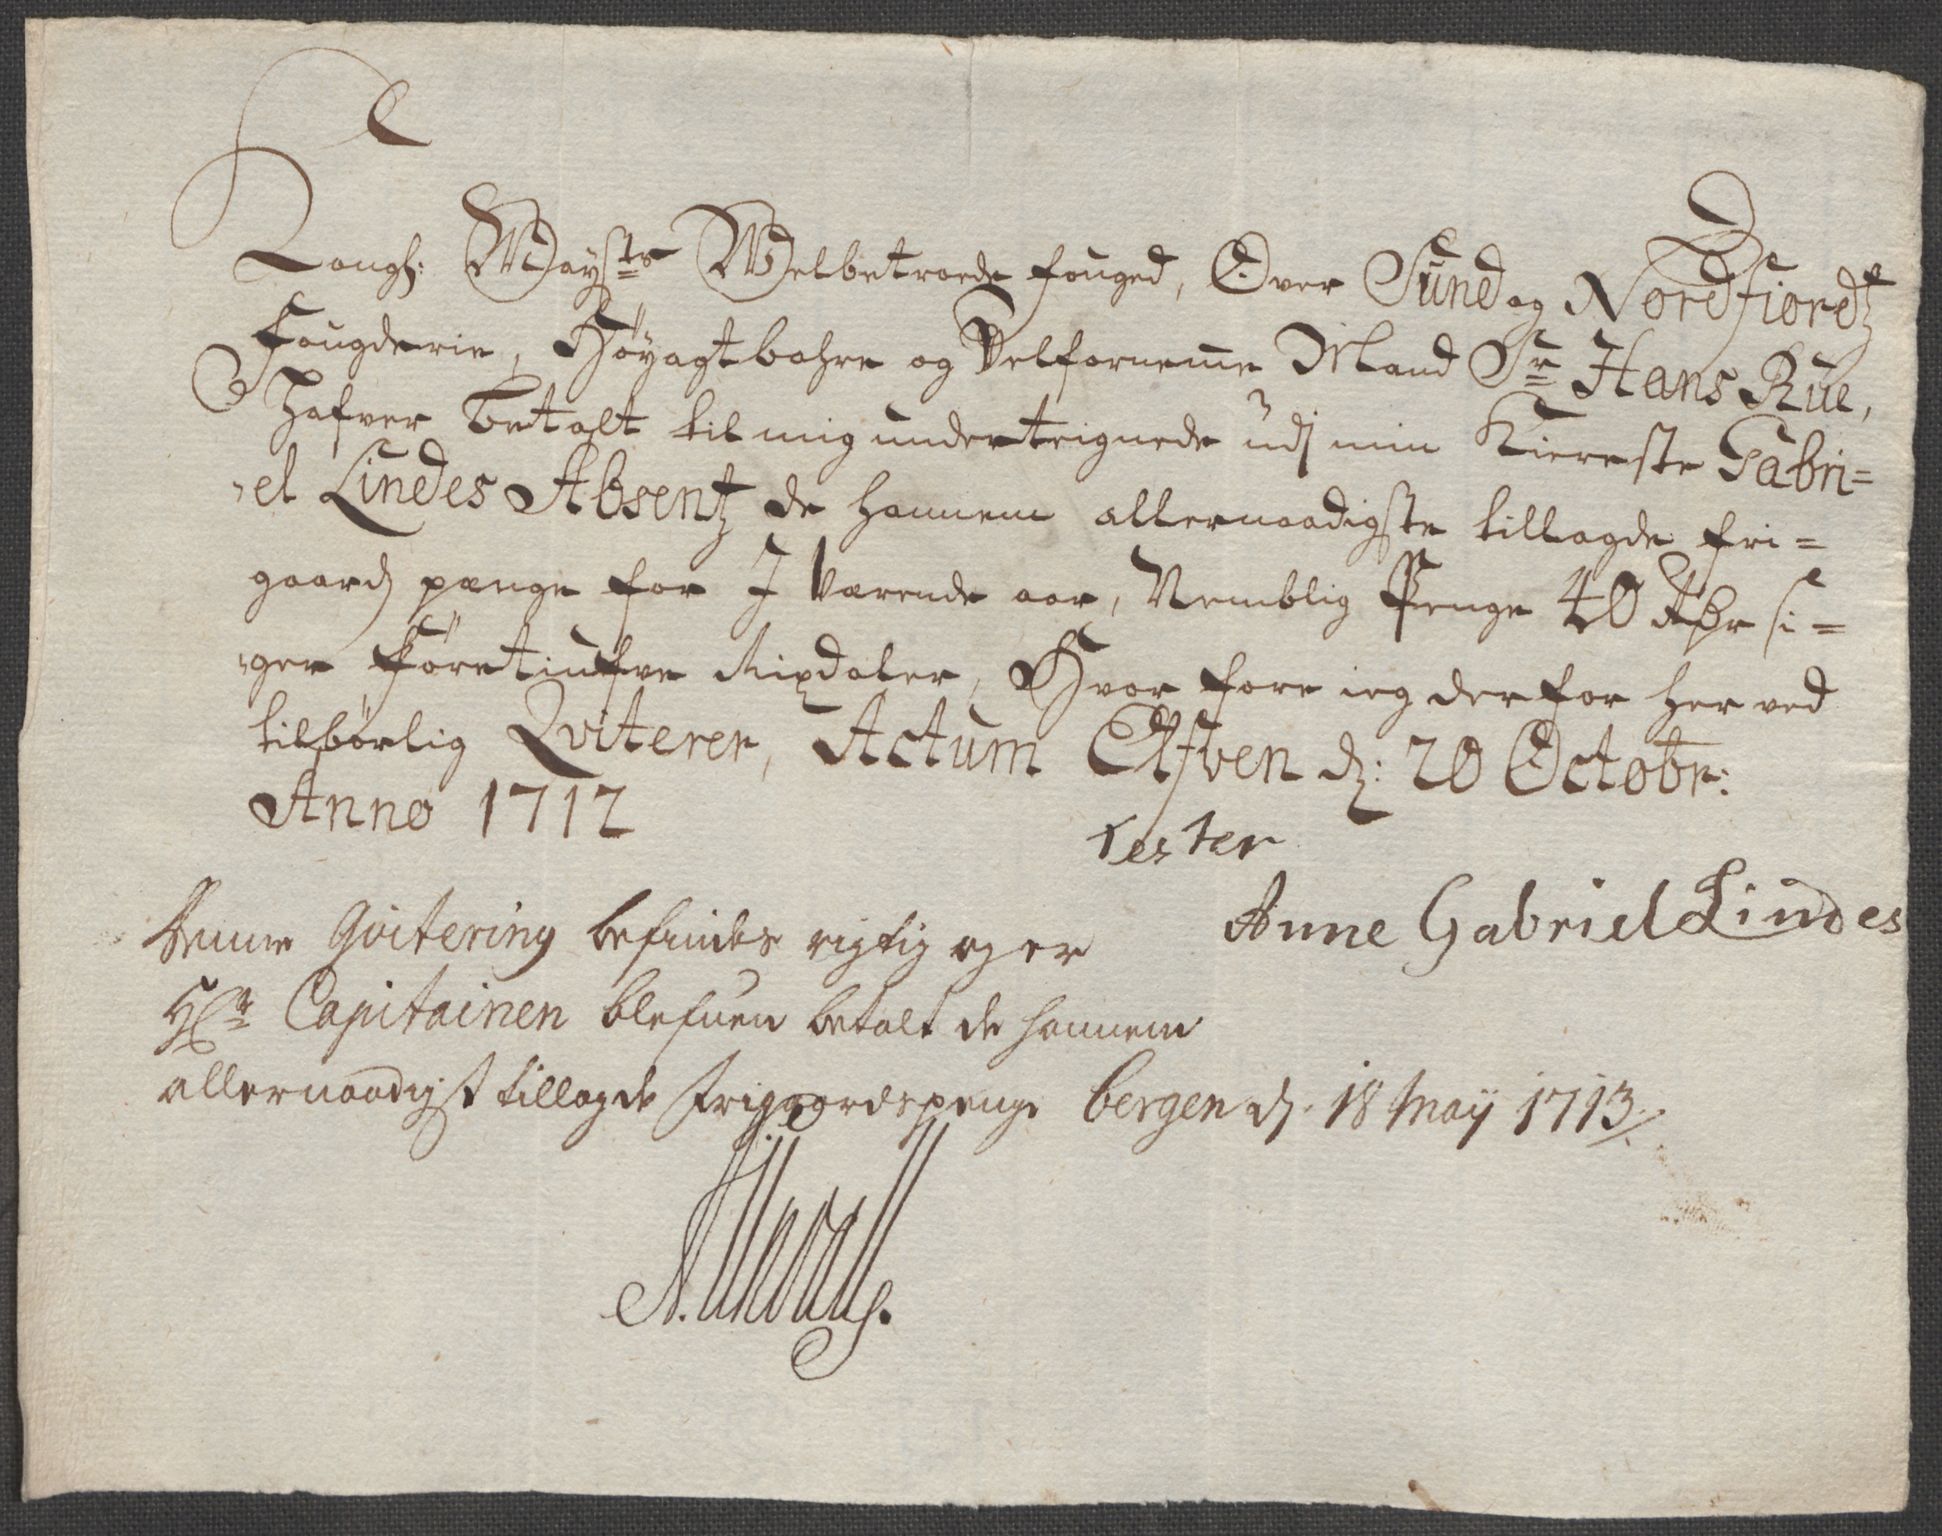 Kongl: Mayst:s Welbetroede fouged, Over Sund og Nordfiordtz
Fougderie, Höyagtbahre og Velforneme Mand Sr Hans Rue,
Hafver Betalt til mig underteignede udj min Kiereste Gabri=
el Lindes Absentz de hannem allernaadigste tillagde fri=
gaardz pænge for I Værende aar, Nemblig Penge 40 Rdr si=
ger Företiufve Rixdaler, Hvor fore ieg derfor her ved
tilbörlig Qviterer, Actum Elfven d: 20 Octobr:
Anno 1712
Anne Gabriel Lindes
Denne Qvitering befindes rigtig og er
Hr Capitainen blefuen betalt de hannem
allernaadigst tillagde frigaardspenge bergen d. 18 May 1713